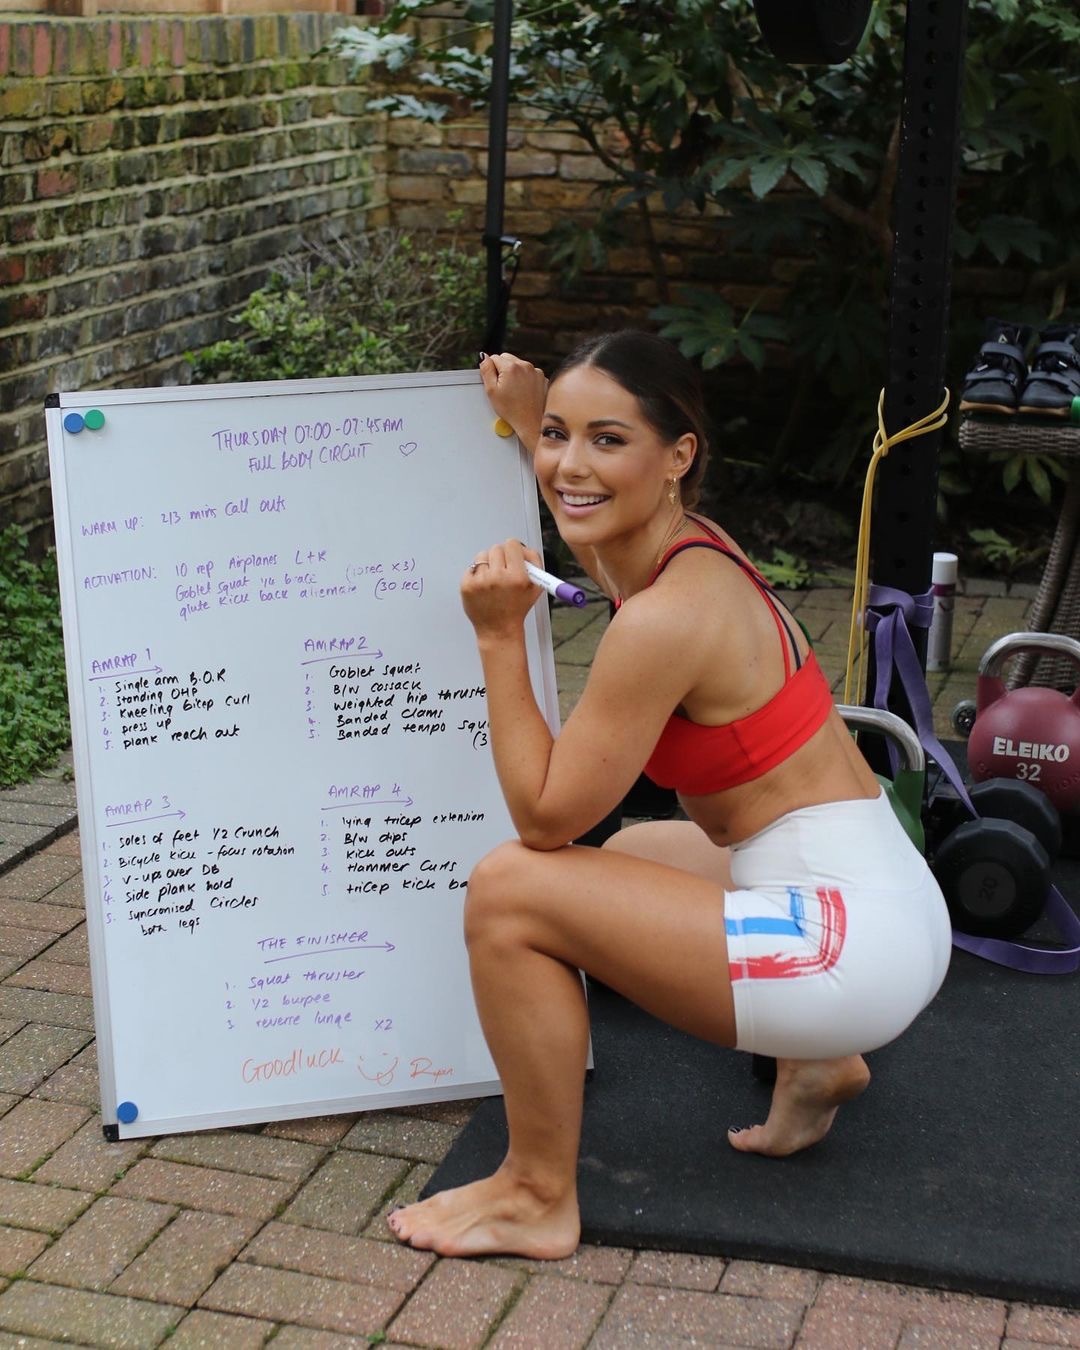 THURSDAY 07:00 - 07:45AM
FULL BODY CIRCUIT ♡
WARM UP: 2/3 mins call outs
ACTIVATION: 10 rep Airplanes L+R
Goblet squat 1/4 brace (10sec x3)
glute kick back alternate (30 sec)
AMRAP 1
1. Single arm B.O.R
2. Standing OHP
3. kneeling bicep curl
4. press up
5. plank reach out
AMRAP 2
1. Goblet squat
2. B/W cossack
3. weighted hip thruste
4. Banded clams
5. Banded tempo squ
(3
AMRAP 3
1. soles of feet 1/2 crunch
2. Bicycle kick - focus rotation
3. V-ups over DB
4. side plank hold
5. syncronised circles
both legs
AMRAP 4
1. lying tricep extension
2. B/W dips
3. kick outs
4. Hammer curls
5. tricep kick ba
THE FINISHER
1. squat thruster
2. 1/2 burpee
3 reverse lunge x2
Goodluck Ryan
ELEIKO
32
20